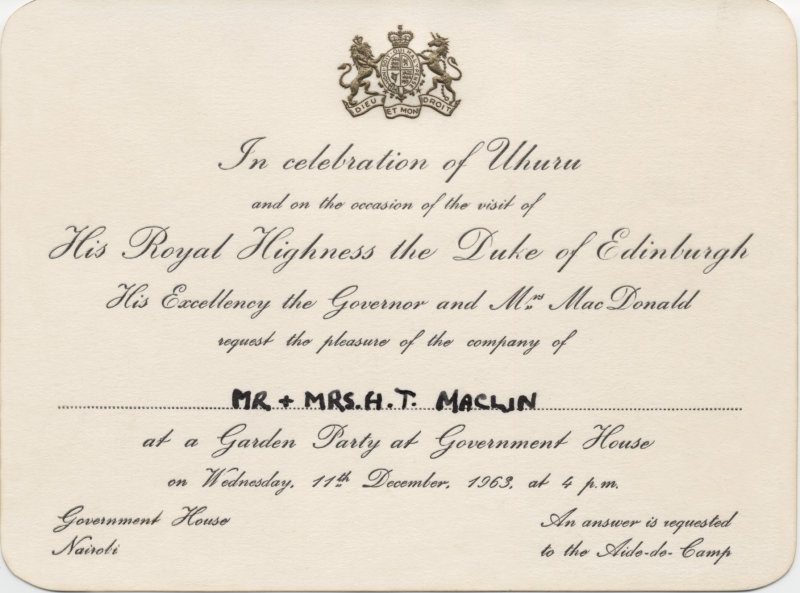 DIEU ET MON DROIT
In celebration of Uhuru
and on the occasion of the visit of
His Royal Highness the Duke of Edinburgh
His Excellency the Governor and Mrs MacDonald
request the pleasure of the company of
MR + MRS. H. T. MACLIN
at a Garden Party at Government House
on Wednesday, 11th December, 1963, at 4 p.m.
Government House
Nairobi
An answer is requested
to the Aide-de-Camp